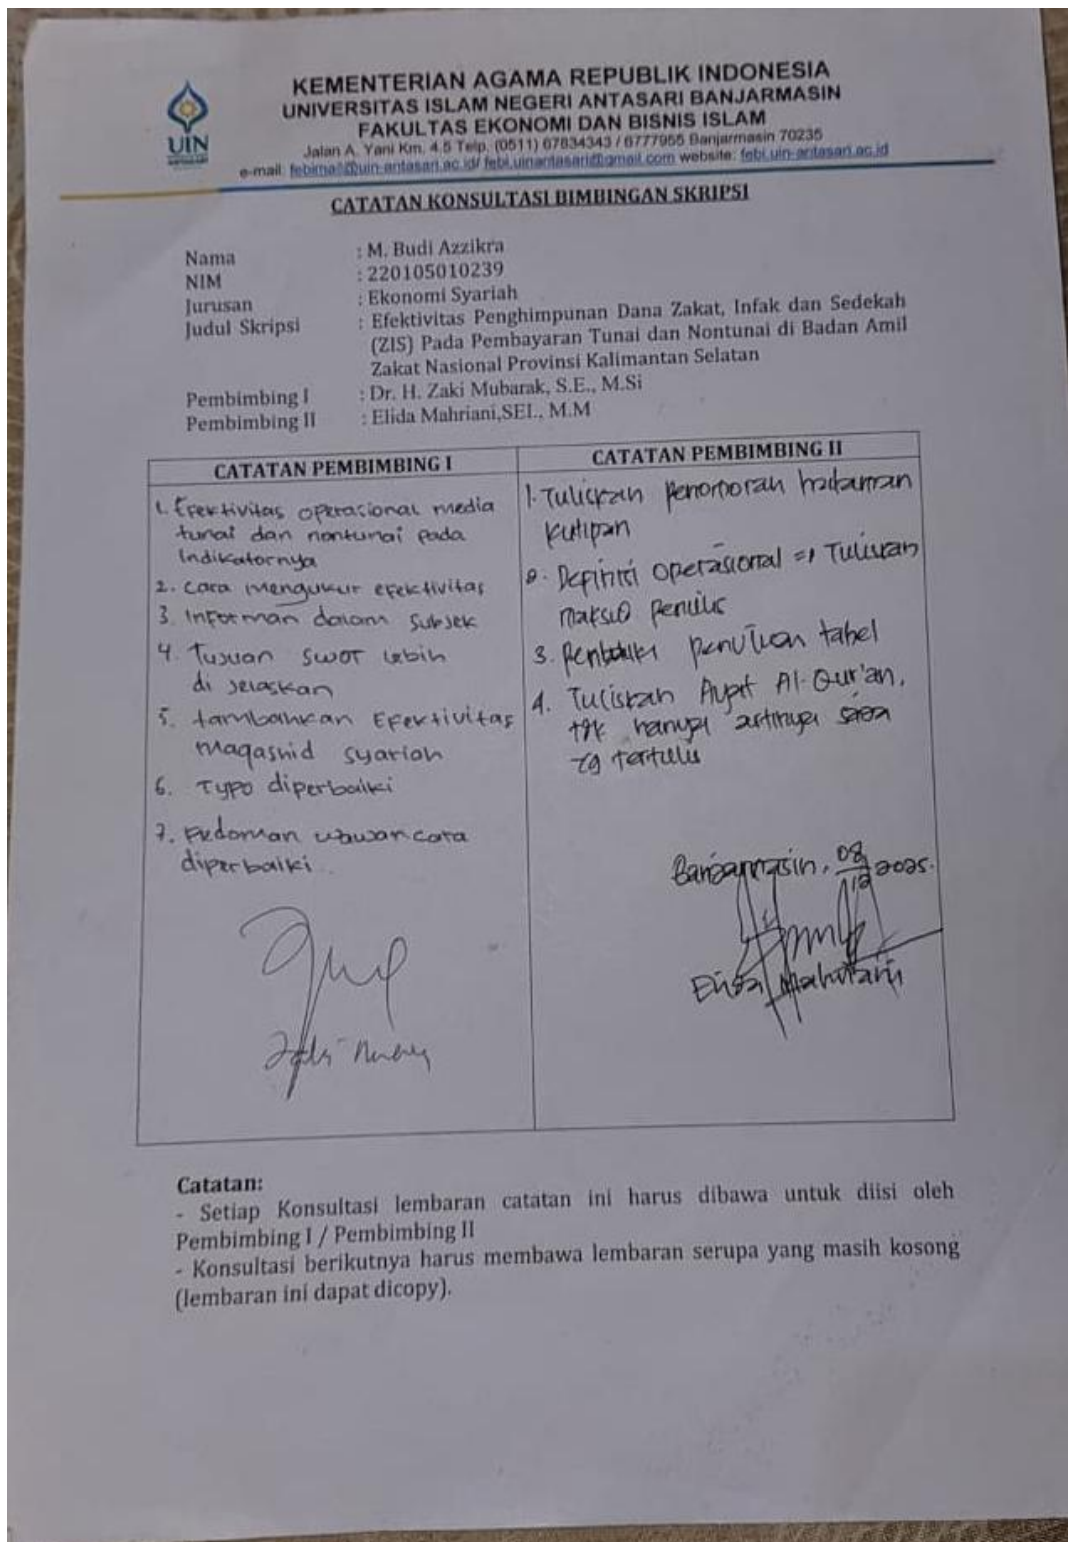 KEMENTERIAN AGAMA REPUBLIK INDONESIA
UNIVERSITAS ISLAM NEGERI ANTASARI BANJARMASIN
FAKULTAS EKONOMI DAN BISNIS ISLAM
Jalan A. Yani Km. 4,5 Telp. (0511) 67834343 / 6777955 Banjarmasin 70235
e-mail: febimail@uin-antasari.ac.id/ febi.uinantasari@gmail.com website: febi.uin-antasari.ac.id
UIN
ANTASARI
CATATAN KONSULTASI BIMBINGAN SKRIPSI
Nama : M. Budi Azzikra
NIM : 220105010239
Jurusan : Ekonomi Syariah
Judul Skripsi : Efektivitas Penghimpunan Dana Zakat, Infak dan Sedekah
(ZIS) Pada Pembayaran Tunai dan Nontunai di Badan Amil
Zakat Nasional Provinsi Kalimantan Selatan
Pembimbing I : Dr. H. Zaki Mubarak, S.E., M.Si
Pembimbing II : Elida Mahriani,SEI., M.M
CATATAN PEMBIMBING I
1. Efektivitas operasional media
tunai dan nontunai pada
Indikatornya
2. Cara mengukur efektivitas
3. Informan dalam Subjek
4. Tujuan SWOT lebih
di jelaskan
5. tambahkan Efektivitas
maqashid syariah
6. Typo diperbaiki
7. Pedoman wawancara
diperbaiki
CATATAN PEMBIMBING II
1. Tuliskan penomoran halaman
kutipan
2. Definisi operasional => Tuliskan
maksud penulis
3. Perbaiki penulisan tabel
4. Tuliskan Ayat Al-Qur'an,
tdk hanya artinya saja
yg tertulis
Banjarmasin, 08/12 2025.
Elida Mahriani
Catatan:
- Setiap Konsultasi lembaran catatan ini harus dibawa untuk diisi oleh
Pembimbing I / Pembimbing II
- Konsultasi berikutnya harus membawa lembaran serupa yang masih kosong
(lembaran ini dapat dicopy).